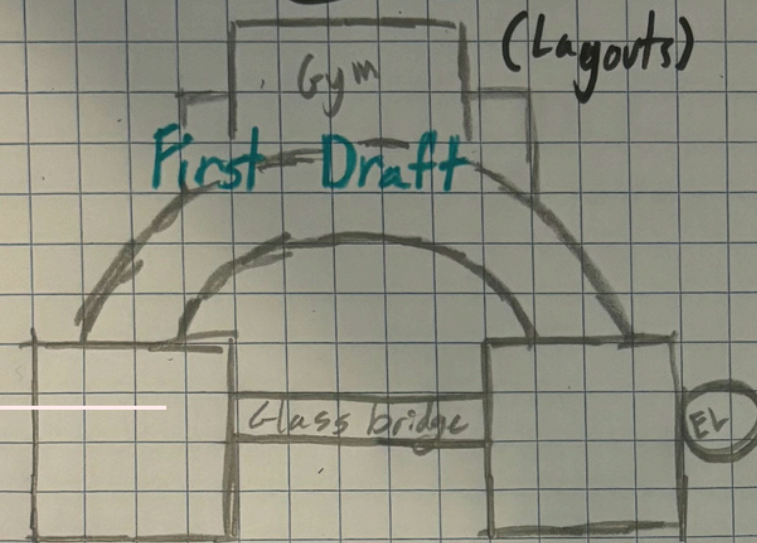 (Layouts)
Gym
First Draft
Glass bridge
EL